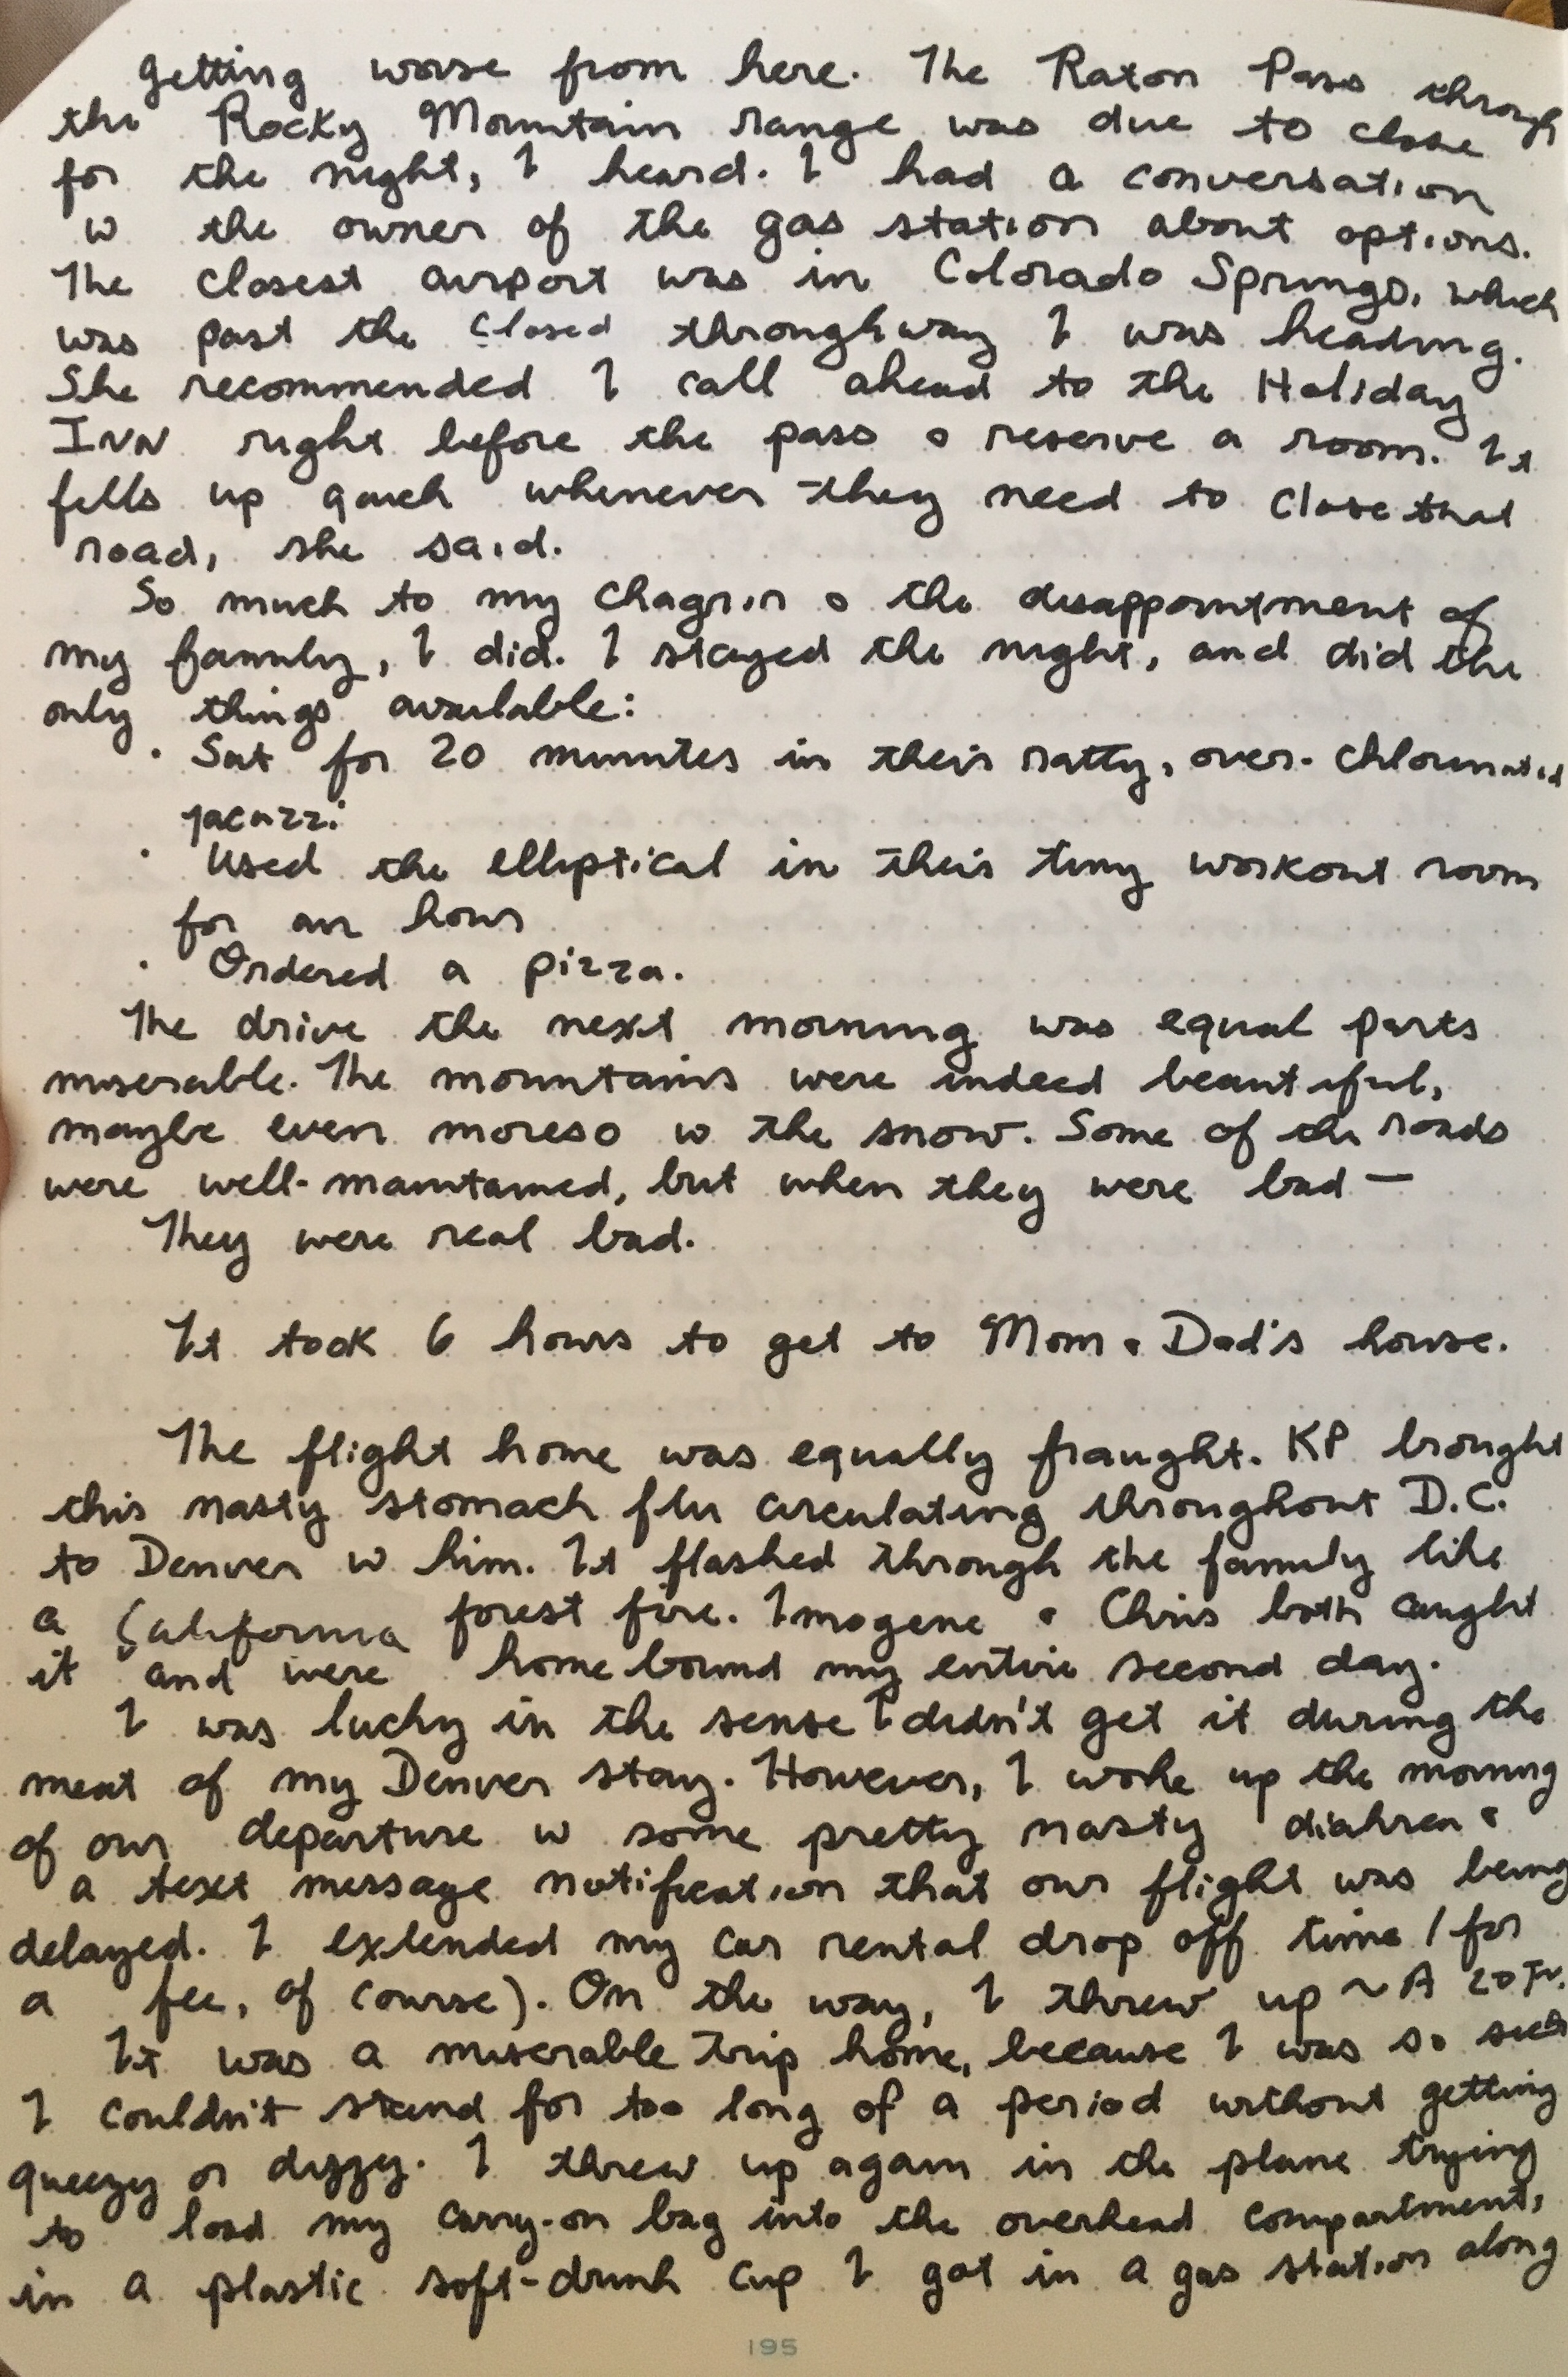 getting worse from here. The Raton Pass through
the Rocky Mountain range was due to close
for the night, I heard. I had a conversation
w the owner of the gas station about options.
The closest airport was in Colorado Springs, which
was past the closed throughway I was heading.
She recommended I call ahead to the Holiday
INN right before the pass & reserve a room. It
fills up quick whenever they need to close that
road, she said.
So much to my chagrin & the disappointment of
my family, I did. I stayed the night, and did the
only things available:
· Sat for 20 minutes in their ratty, over-chlorinated
jacuzzi
· Used the elliptical in their tiny workout room
for an hour
· Ordered a pizza.
The drive the next morning was equal parts
miserable. The mountains were indeed beautiful,
maybe even moreso w the snow. Some of the roads
were well-maintained, but when they were bad —
They were real bad.
It took 6 hours to get to Mom & Dad's house.
The flight home was equally fraught. KP brought
this nasty stomach flu circulating throughout D.C.
to Denver w him. It flashed through the family like
a California forest fire. Imogene & Chris both caught
it and were homebound my entire second day.
I was lucky in the sense I didn't get it during the
meat of my Denver stay. However, I woke up the morning
of our departure w some pretty nasty diahrea &
a text message notification that our flight was being
delayed. I extended my car rental drop off time (for
a fee, of course). On the way, I threw up ~ A
It was a miserable trip home, because I was so sick
I couldn't stand for too long of a period without getting
queezy or dizzy. I threw up again in the plane trying
to load my carry-on bag into the overhead compartment,
in a plastic soft-drink cup I got in a gas station along
195